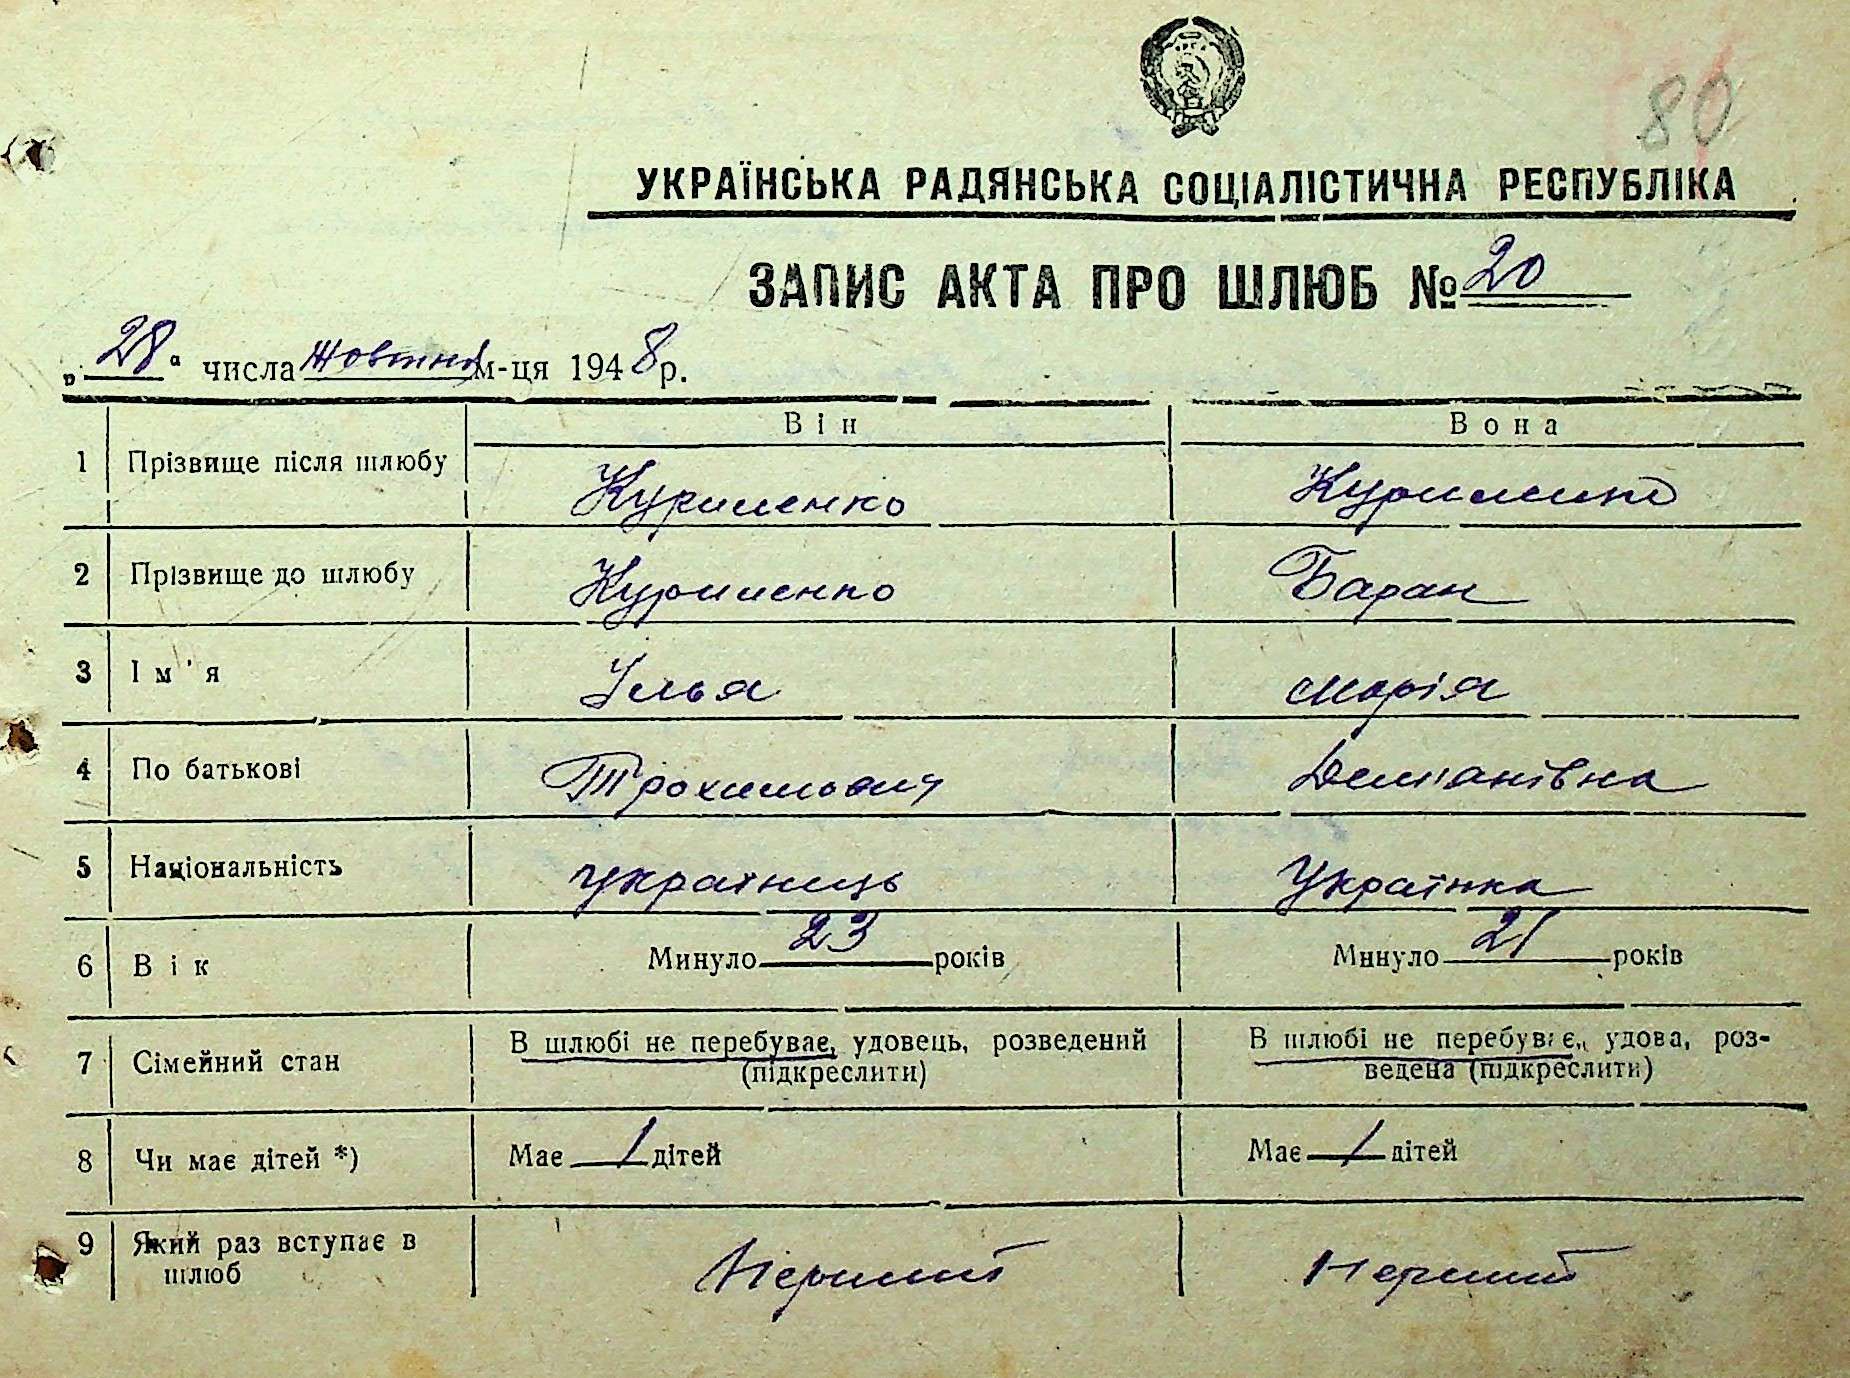 80
УКРАЇНСЬКА РАДЯНСЬКА СОЦІАЛІСТИЧНА РЕСПУБЛІКА
ЗАПИС АКТА ПРО ШЛЮБ № 20
„28“ числа жовтня м-ця 1948 р.
Він Вона
1 Прізвище після шлюбу Куриленко Куриленко
2 Прізвище до шлюбу Куриленко Баран
3 Ім'я Ілья Марія
4 По батькові Трохимович Дем'янівна
5 Національність українець Українка
6 Вік Минуло 23 років Минуло 21 років
7 Сімейний стан В шлюбі не перебуває, удовець, розведений (підкреслити) В шлюбі не перебуває, удова, роз-
ведена (підкреслити)
8 Чи має дітей *) Має / дітей Має / дітей
9 Який раз вступає в
шлюб Перший Перший